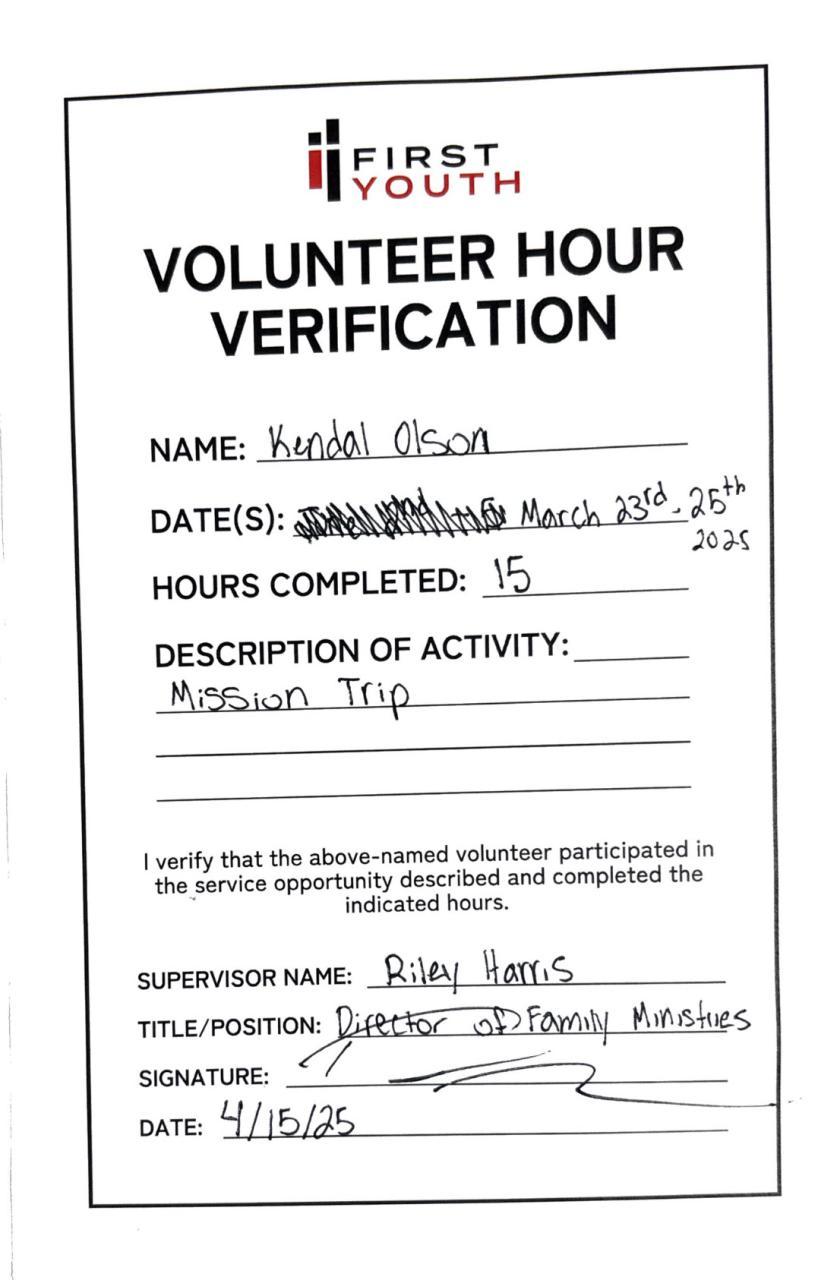 FIRST
YOUTH
VOLUNTEER HOUR
VERIFICATION
NAME: Kendal Olson
DATE(S): March 23rd - 25th
2025
HOURS COMPLETED: 15
DESCRIPTION OF ACTIVITY:
Mission Trip
I verify that the above-named volunteer participated in
the service opportunity described and completed the
indicated hours.
SUPERVISOR NAME: Riley Harris
TITLE/POSITION: Director of Family Ministries
SIGNATURE:
DATE: 4/15/25